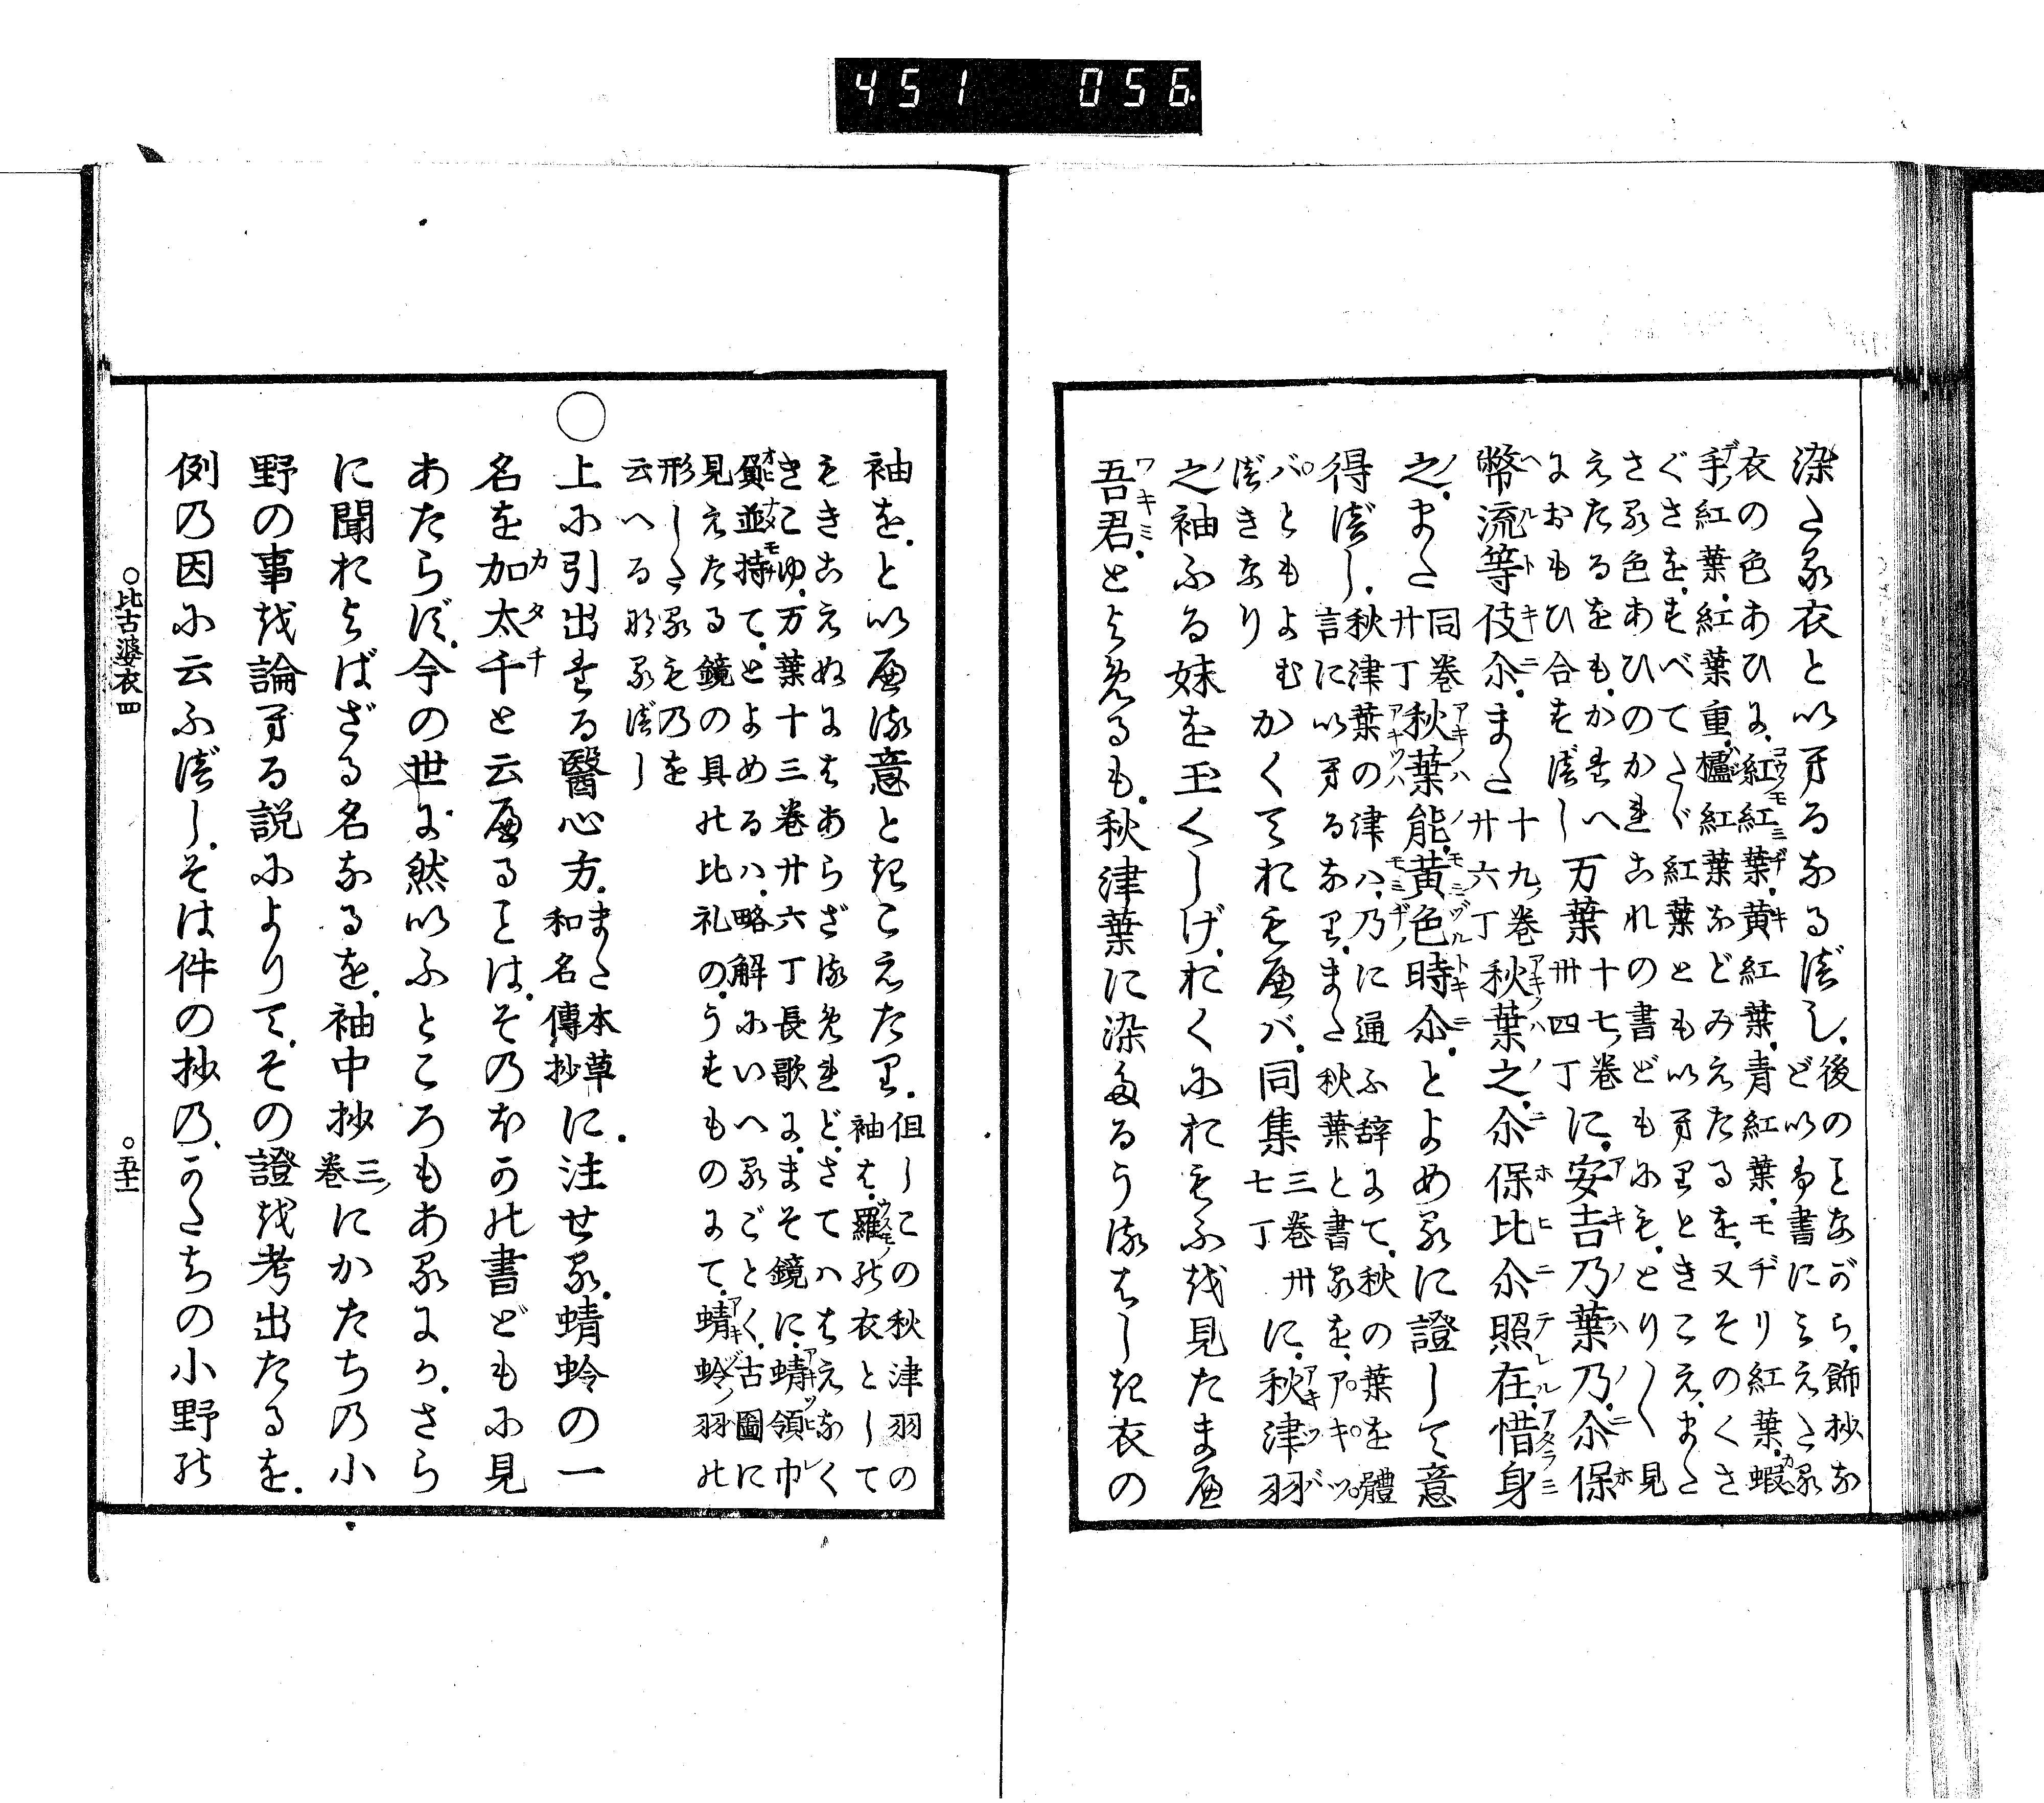 451 056
染たる衣といへるなるべし。後のことながら。飾抄な
ど以下書にみえたる
衣の色あひに。紅紅葉。黄紅葉。青紅葉。モヂリ紅葉。蝦
手紅葉。紅葉重。櫨紅葉などみえたるを。又そのくさ
ぐさを。すべてたゞ紅葉ともいへりときこえ。また
さる色あひのかれこれの書どもにも。とり〴〵見
えたるをも。かぞへ
におもひ合すべし万葉十七巻卅四丁に。安吉乃葉乃。尓保
幣流等伎尓。また十九巻廿六丁秋葉之。尓保比尓照在。惜身
之。また同巻廿丁秋葉能。黄色時尓。とよめるに證して意
得べし。秋津葉の津ハ。乃に通ふ辞にて。秋の葉を體
言にいへるなり。また秋葉と書るを。アキツ
バともよむ
べきなり
かくておもへバ。同集三巻卅七丁に。秋津羽
之袖ふる妹を玉くしげ。おくにおもふを見たまへ
吾君。とよめるも。秋津葉に染たるうるはしき衣の
袖を。といへる意ときこえたり。但しこの秋津羽の
袖は。羅の衣として
もきこえぬにはあらざるめれど。さてハはえなく
きこゆ。万葉十三巻廿六丁長歌に。まそ鏡に。蜻領巾
負並持て。とよめるハ。略解にいへるごとく。古圖に
見えたる鏡の具の比礼の。うすものにて。蜻蛉羽の
形したるものを
云へるなるべし
○上に引出たる醫心方。また本草和名傳抄に。注せる。蜻蛉の一
名を加太千と云へることは。そのほかの書どもに見
あたらず。今の世に然いふところもあるにか。さら
に聞およばざる名なるを。袖中抄三巻にかたちの小
野の事を論へる説によりて。その證を考出たるを。
例の因に云ふべし。そは件の抄の、かたちの小野の
○比古婆衣四
○五十一